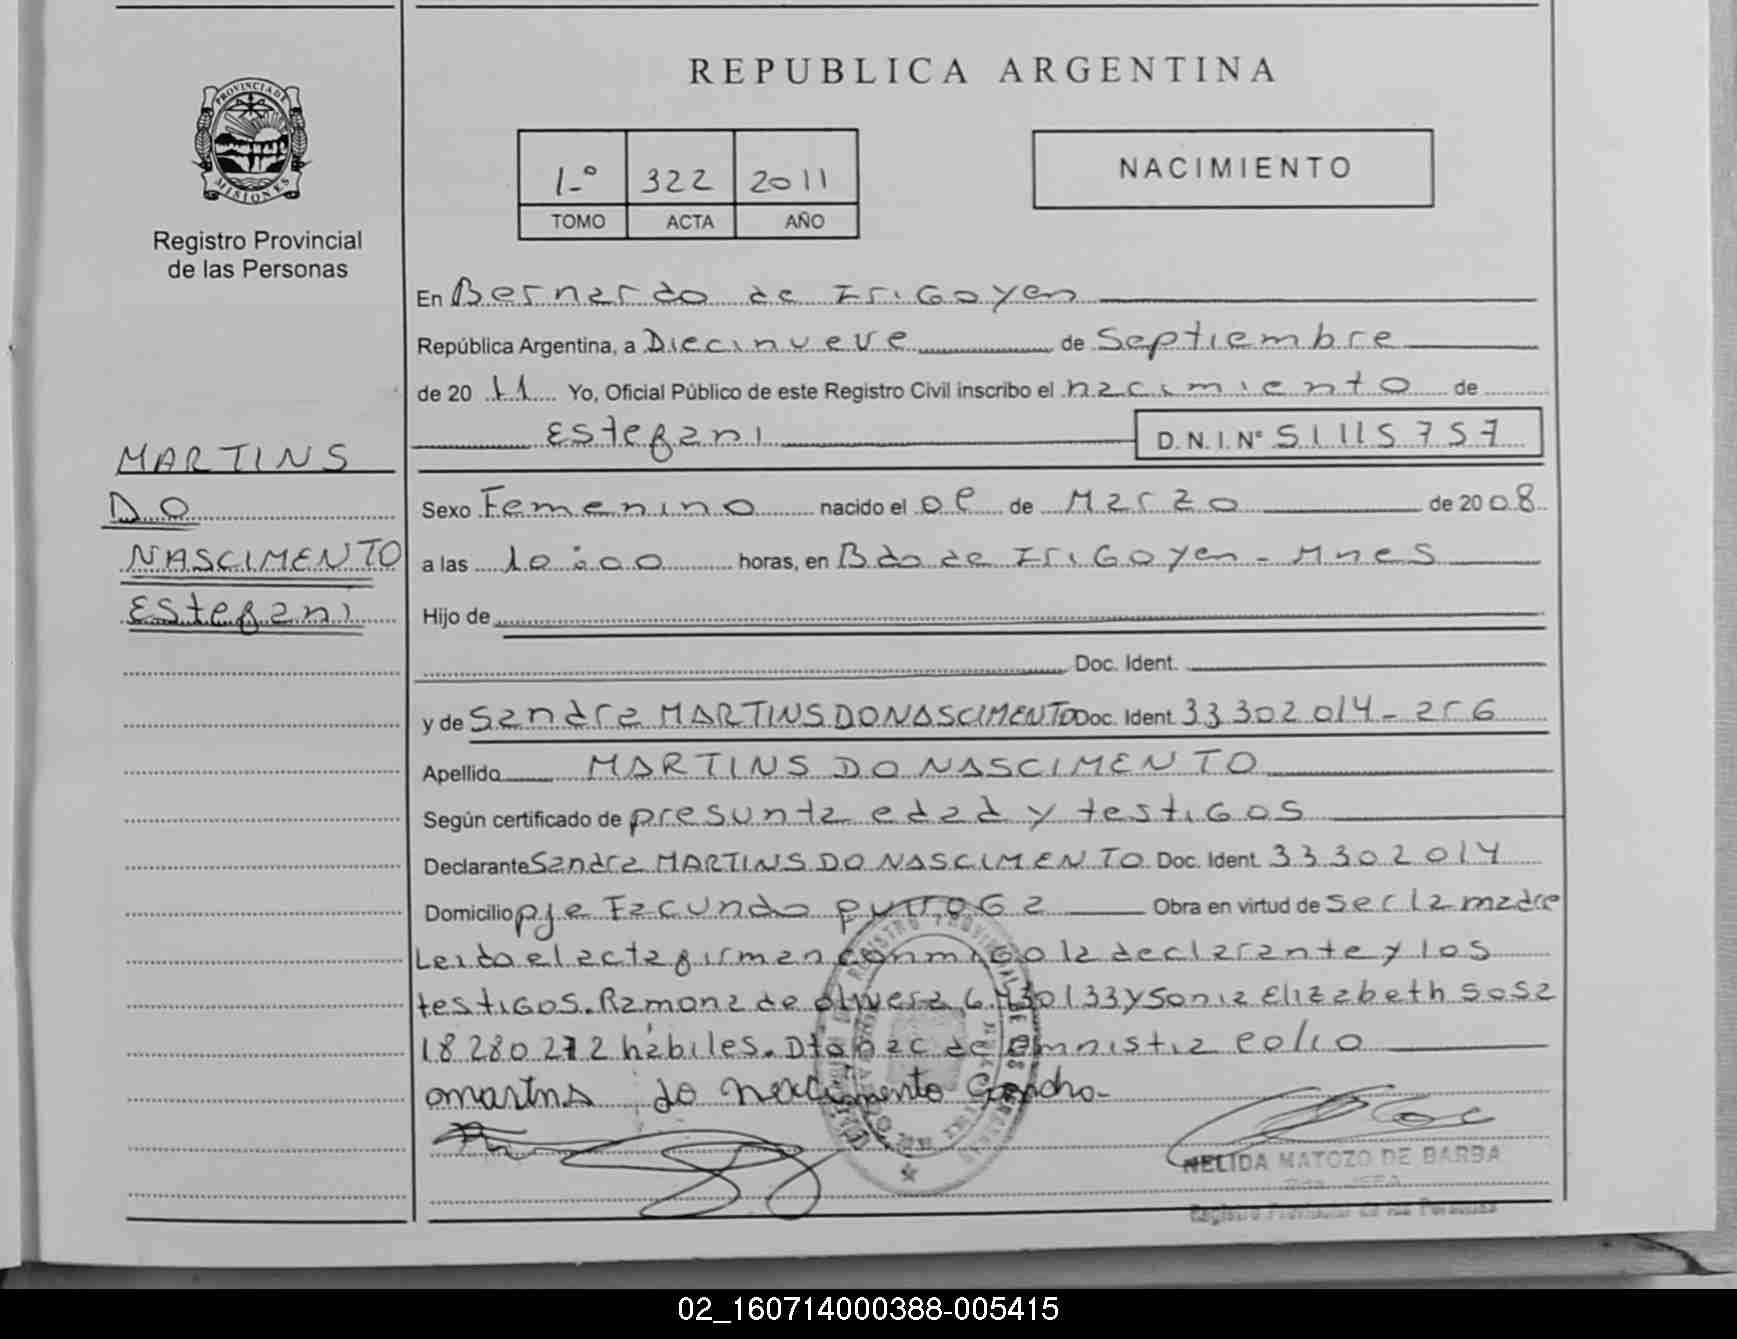 REPUBLICA ARGENTINA
PROVINCIA DE MISIONES
Registro Provincial
de las Personas
1-º 322 2011
TOMO ACTA AÑO
NACIMIENTO
MARTINS
DO
NASCIMENTO
Estefani
En Bernardo de Irigoyen
República Argentina, a Diecinueve de Septiembre
de 2011 Yo, Oficial Público de este Registro Civil inscribo el nacimiento de
Estefani D.N.I. Nº 51115757
Sexo Femenino nacido el de Marzo de 2008
a las 10:00 horas, en Bdo de Irigoyen - Mnes
Hijo de
Doc. Ident.
y de Sandra MARTINS DO NASCIMENTO Doc. Ident. 33302014 - arG
Apellido MARTINS DO NASCIMENTO
Según certificado de presunta edad y testigos
Declarante Sandra MARTINS DO NASCIMENTO Doc. Ident. 33302014
Domicilio pje Facundo Obra en virtud de ser la madre
Leida el acta firman conmigo la declarante y los
testigos. Ramona de olivera y Sonia Elizabeth Sosa
18280272 habiles. de
do
NELIDA MATOZO DE BARBA
Registro Provincial de las Personas
02_160714000388-005415